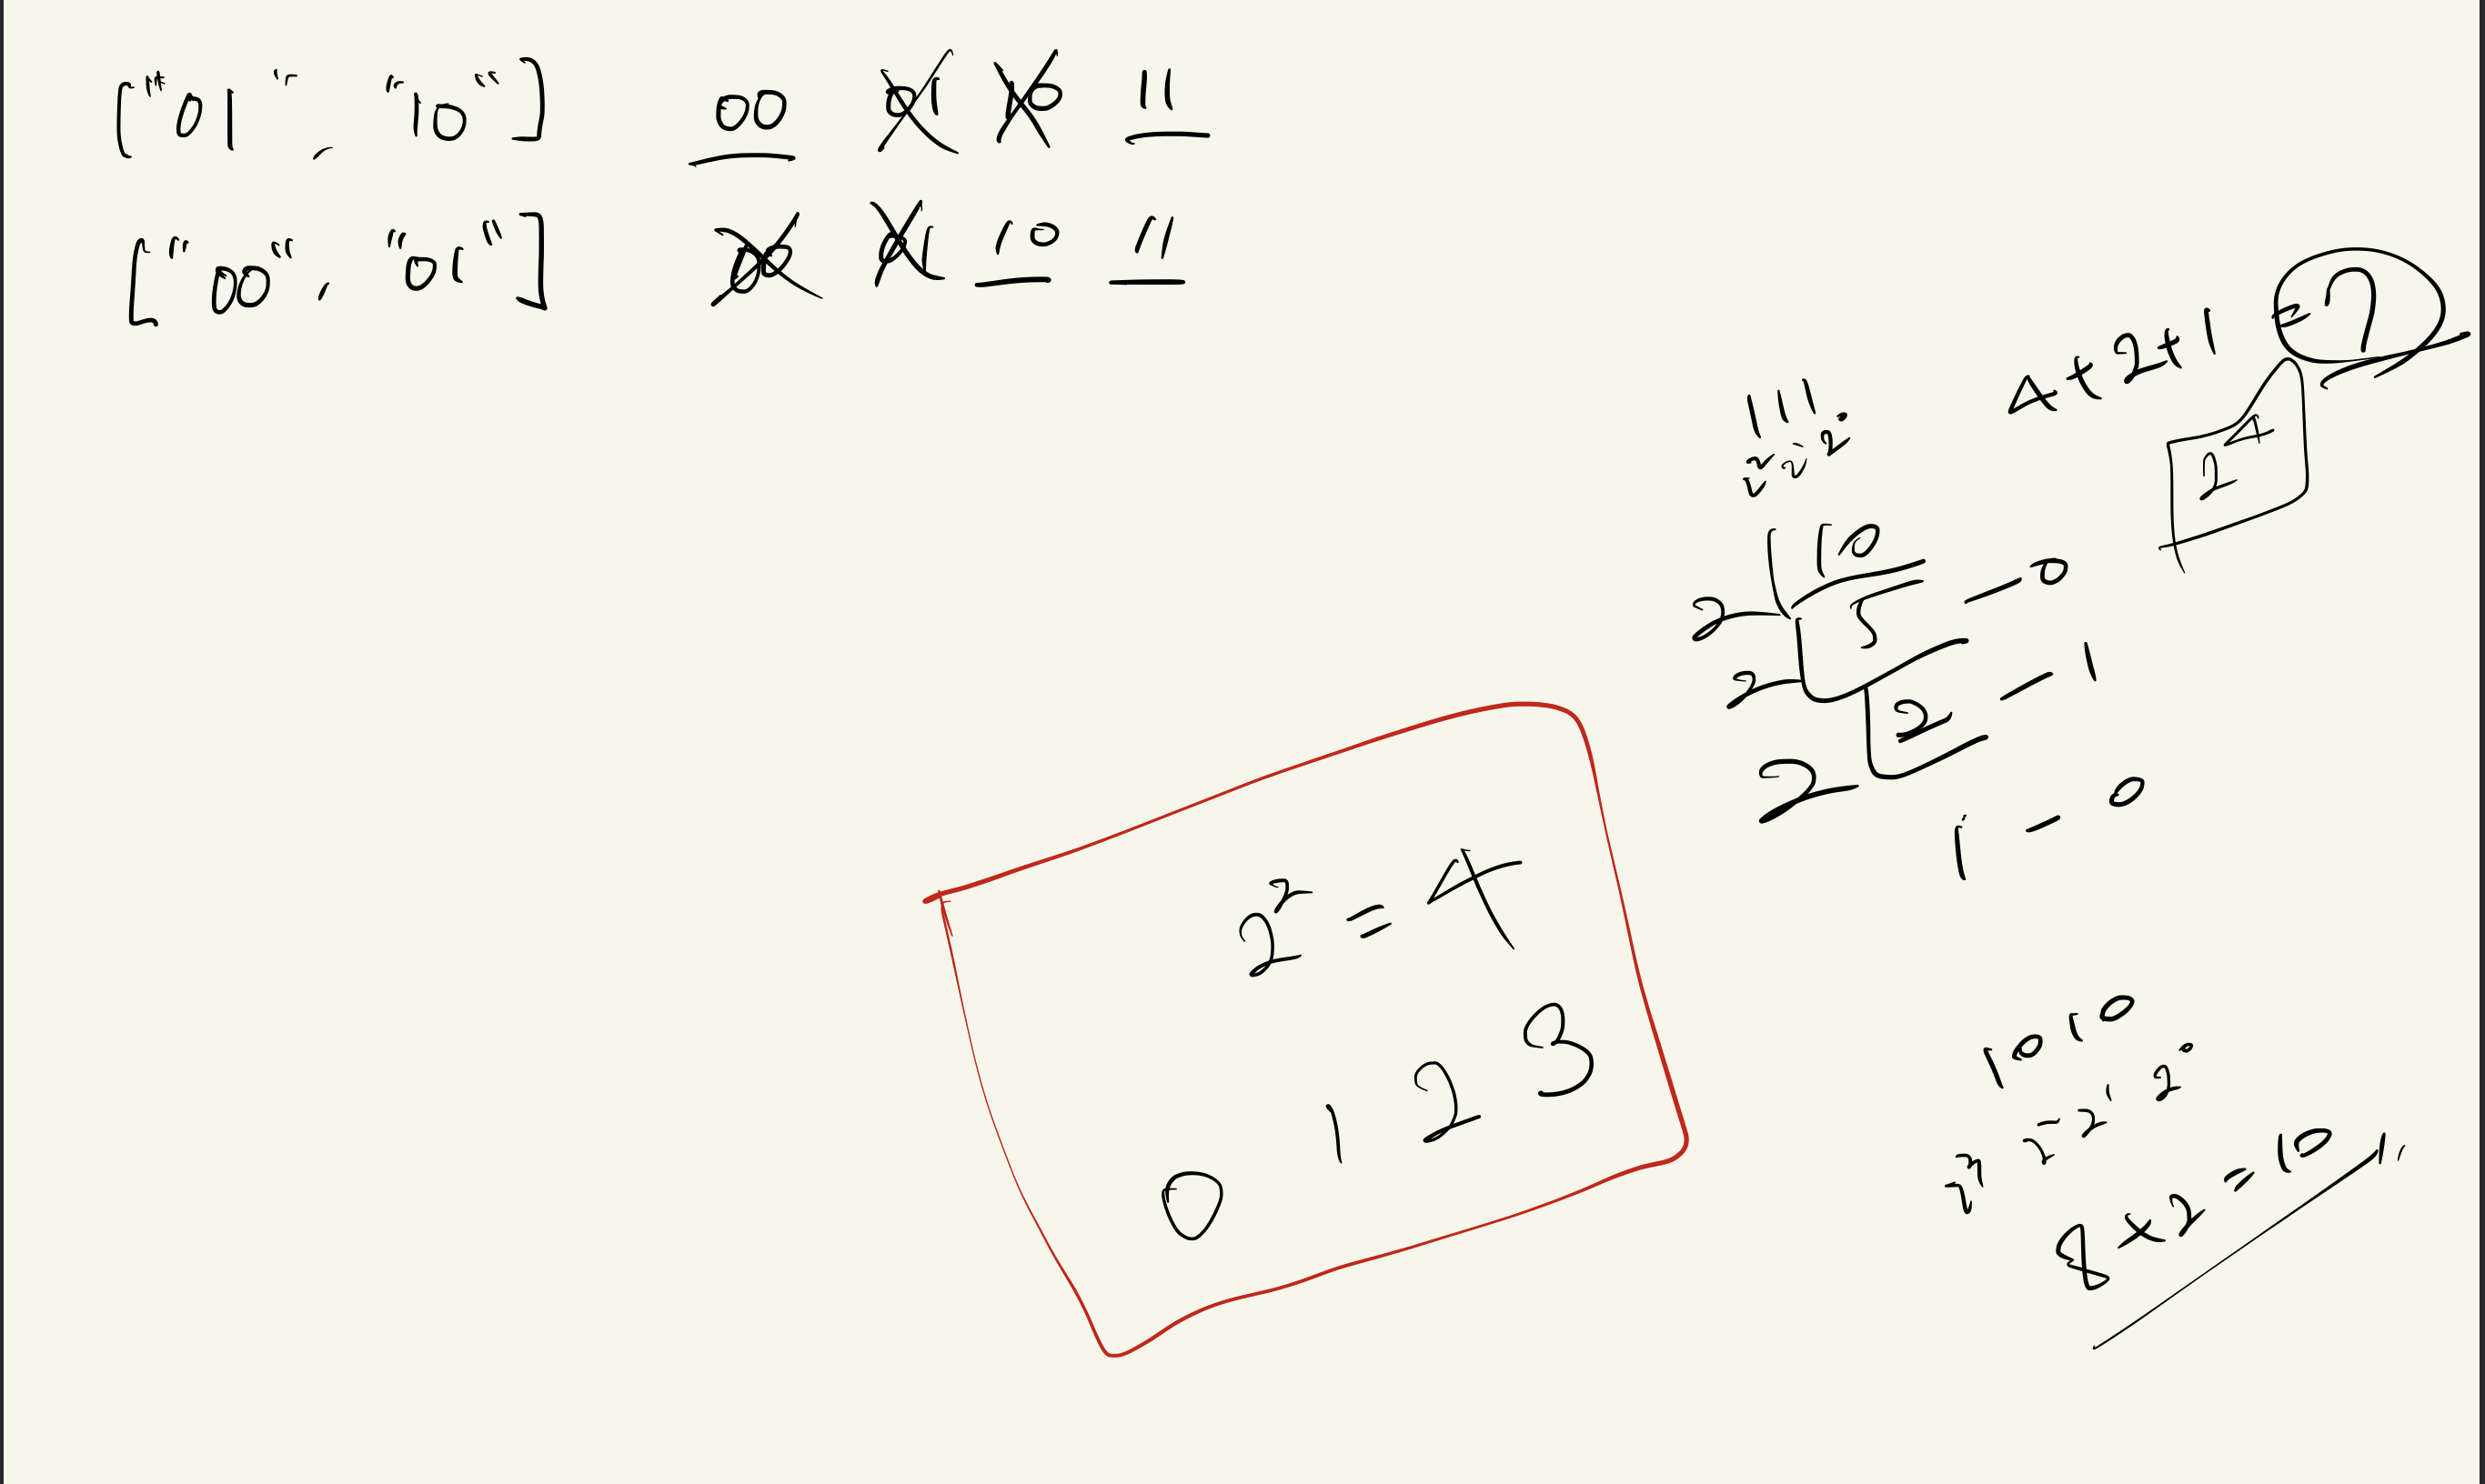 ["01", "10"] 00 01 10 11
["00", "01"] 00 01 10 11
4+2+1 = 7
111
2² 2¹ 2⁰
2⁴
2 10
2 5 - 0
2 2 - 1
1 - 0
2² = 4
0 1 2 3
1010
2³ 2² 2¹ 2⁰
8+2=10